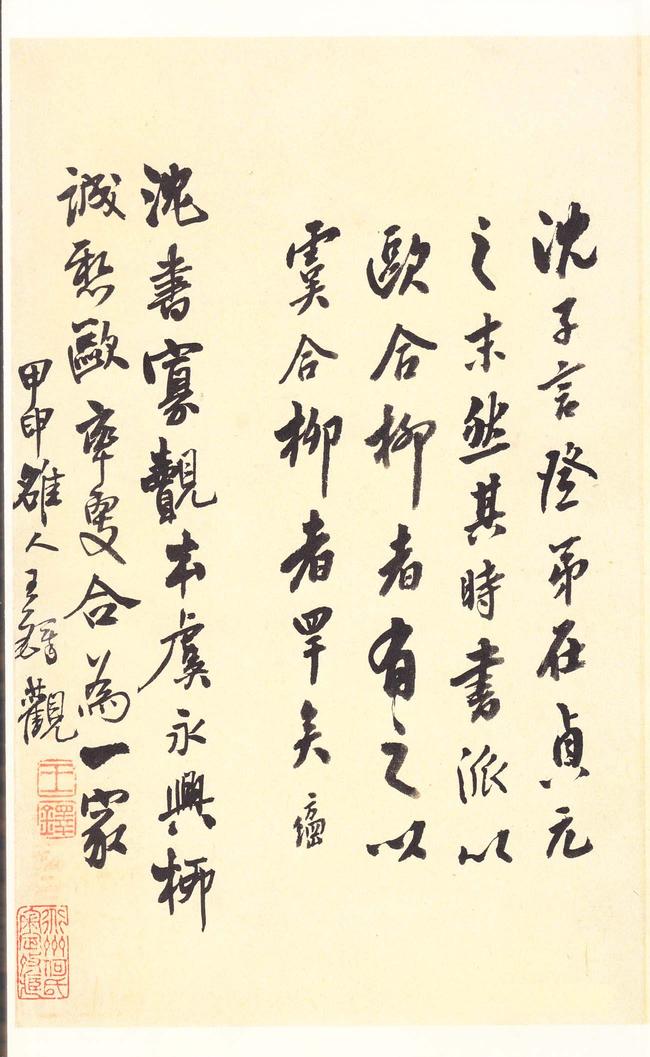 沈子言登第在貞元
之末然其時書派以
歐合柳者有之以
虞合柳者罕矣 方綱
沈書寡觀本虞永興柳
誠懸歐率更合為一家
甲申雒人王鐸觀
王鐸